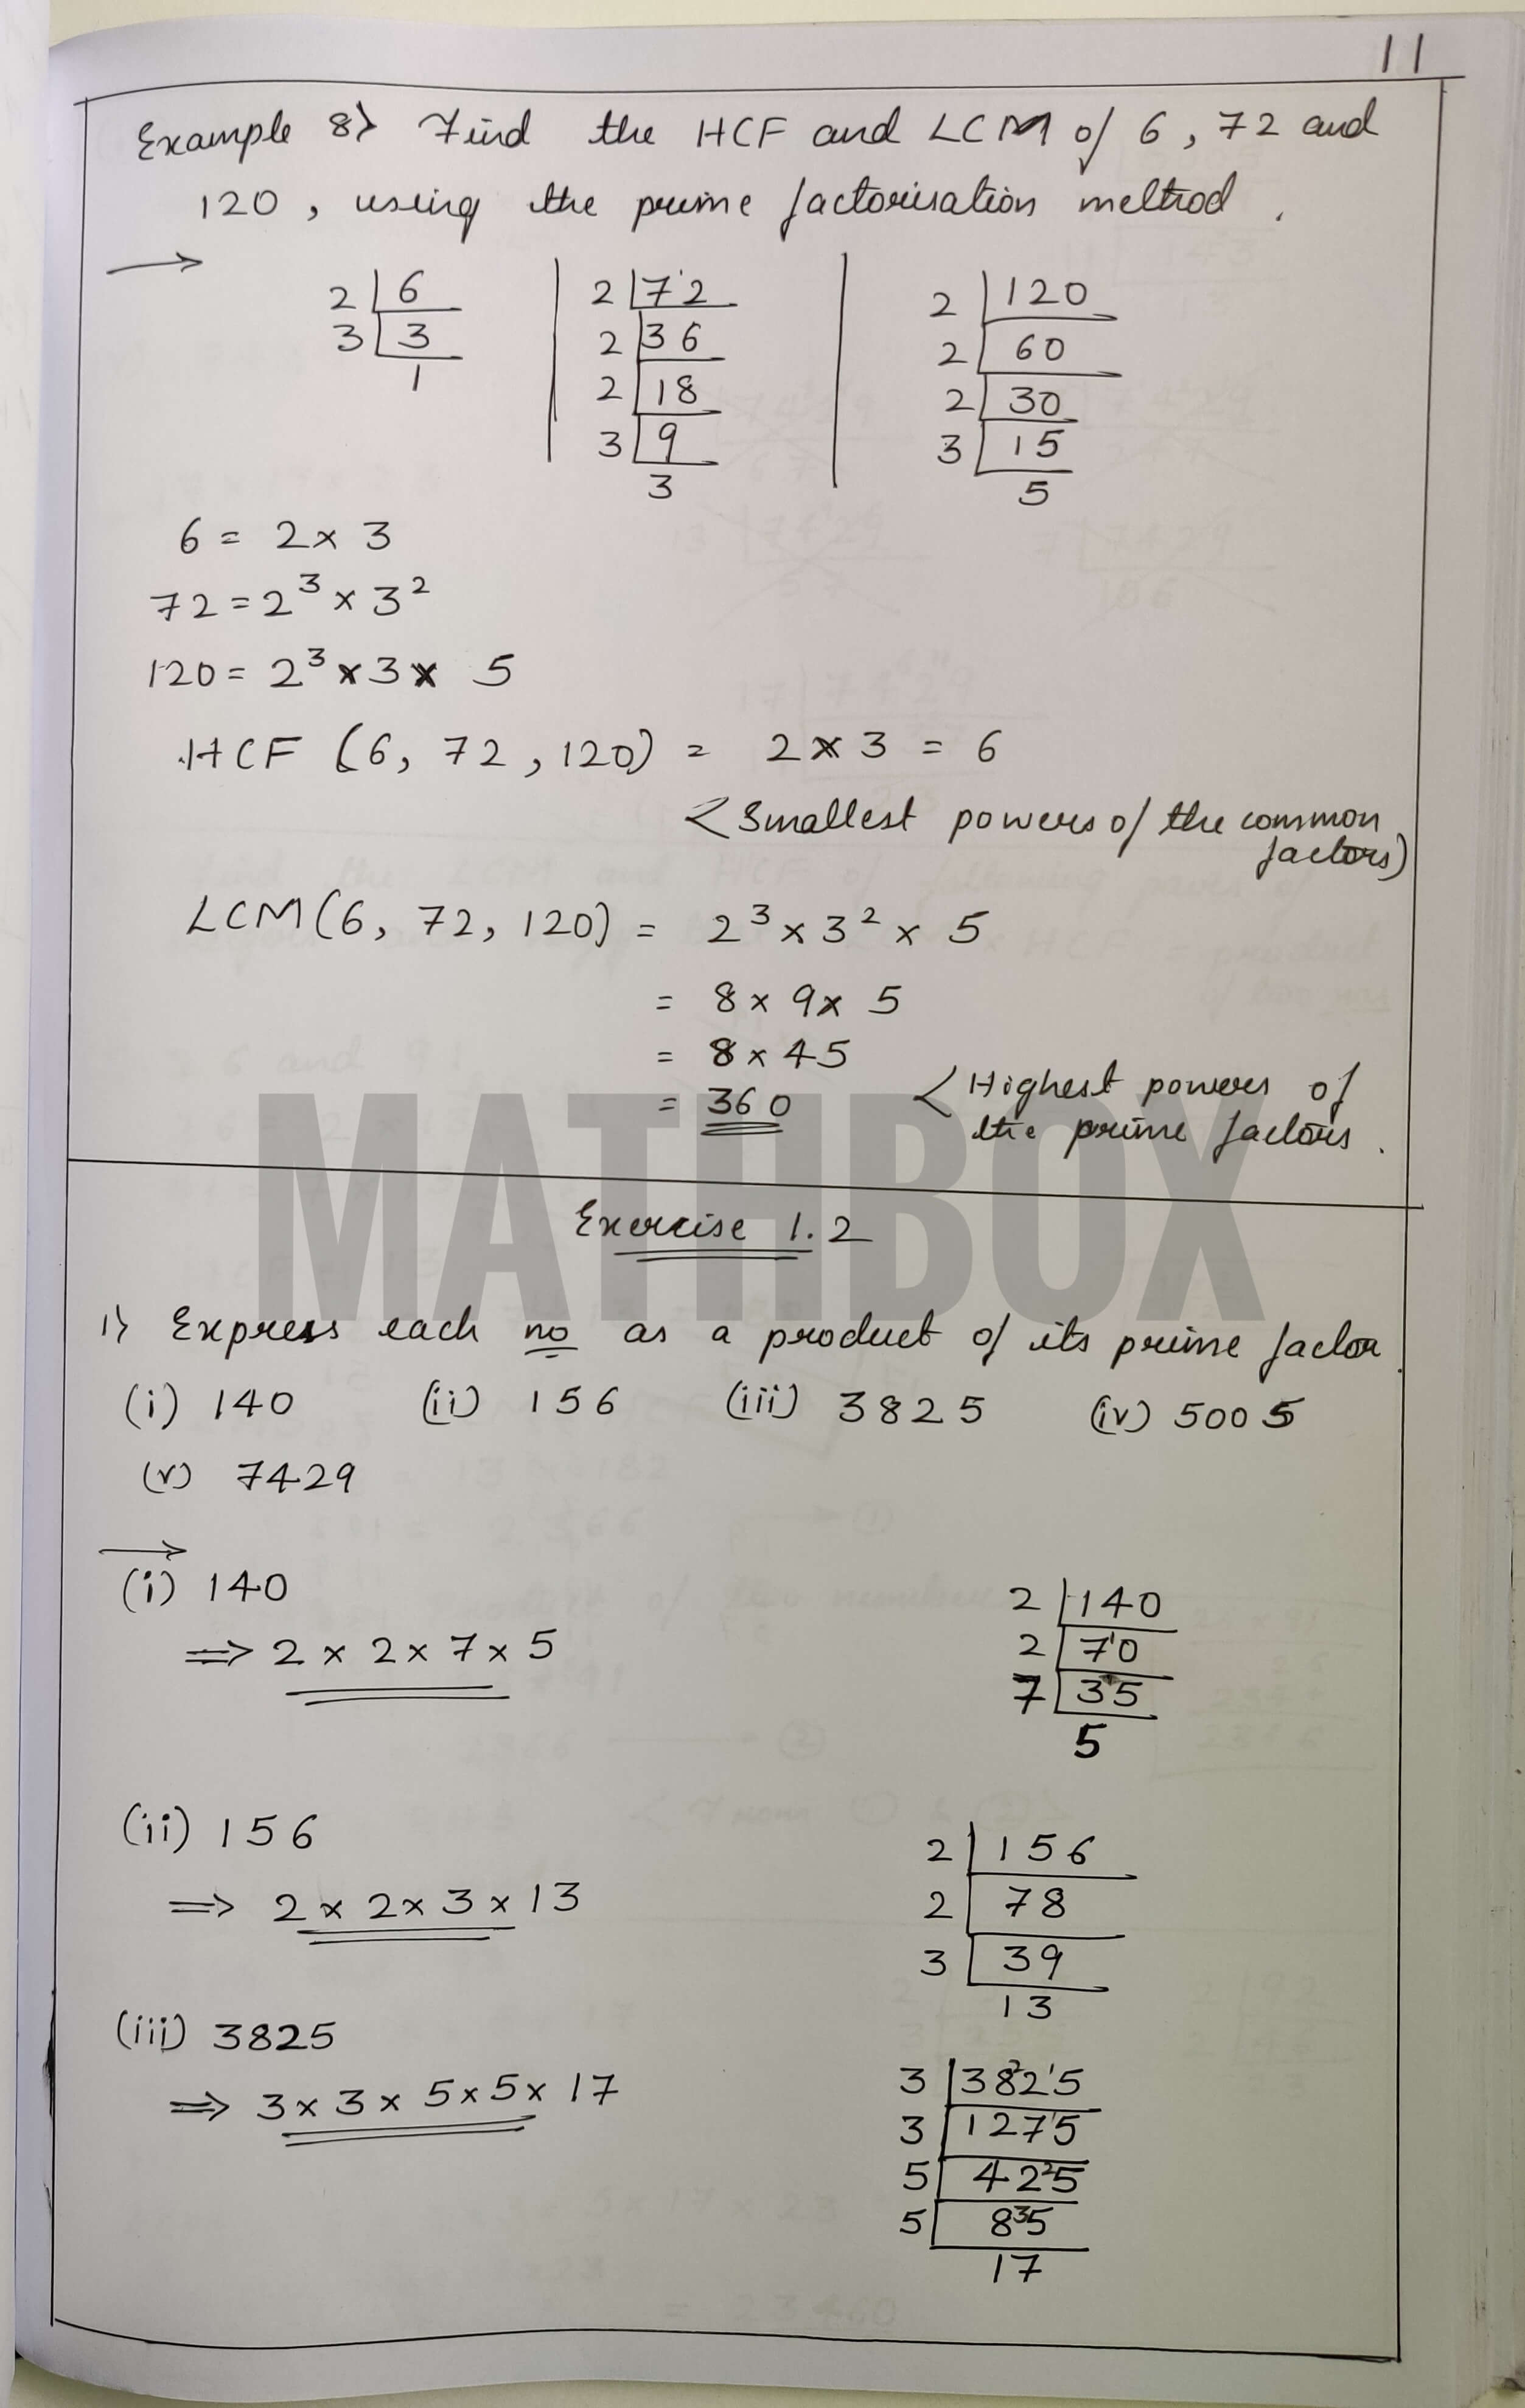 11
Example 8> Find the HCF and LCM of 6, 72 and
120, using the prime factorisation method.
2 | 6
3 | 3
1
2 | 72
2 | 36
2 | 18
3 | 9
3
2 | 120
2 | 60
2 | 30
3 | 15
5
6 = 2 × 3
72 = 2³ × 3²
120 = 2³ × 3 × 5
HCF (6, 72, 120) = 2 × 3 = 6
< Smallest powers of the common
factors)
LCM (6, 72, 120) = 2³ × 3² × 5
= 8 × 9 × 5
= 8 × 45
= 360
< Highest powers of
the prime factors.
MATHBOX
Exercise 1.2
1> Express each no as a product of its prime factor.
(i) 140 (ii) 156 (iii) 3825 (iv) 5005
(v) 7429
(i) 140
⇒ 2 × 2 × 7 × 5
2 | 140
2 | 70
7 | 35
5
(ii) 156
⇒ 2 × 2 × 3 × 13
2 | 156
2 | 78
3 | 39
13
(iii) 3825
⇒ 3 × 3 × 5 × 5 × 17
3 | 3825
3 | 1275
5 | 425
5 | 85
17